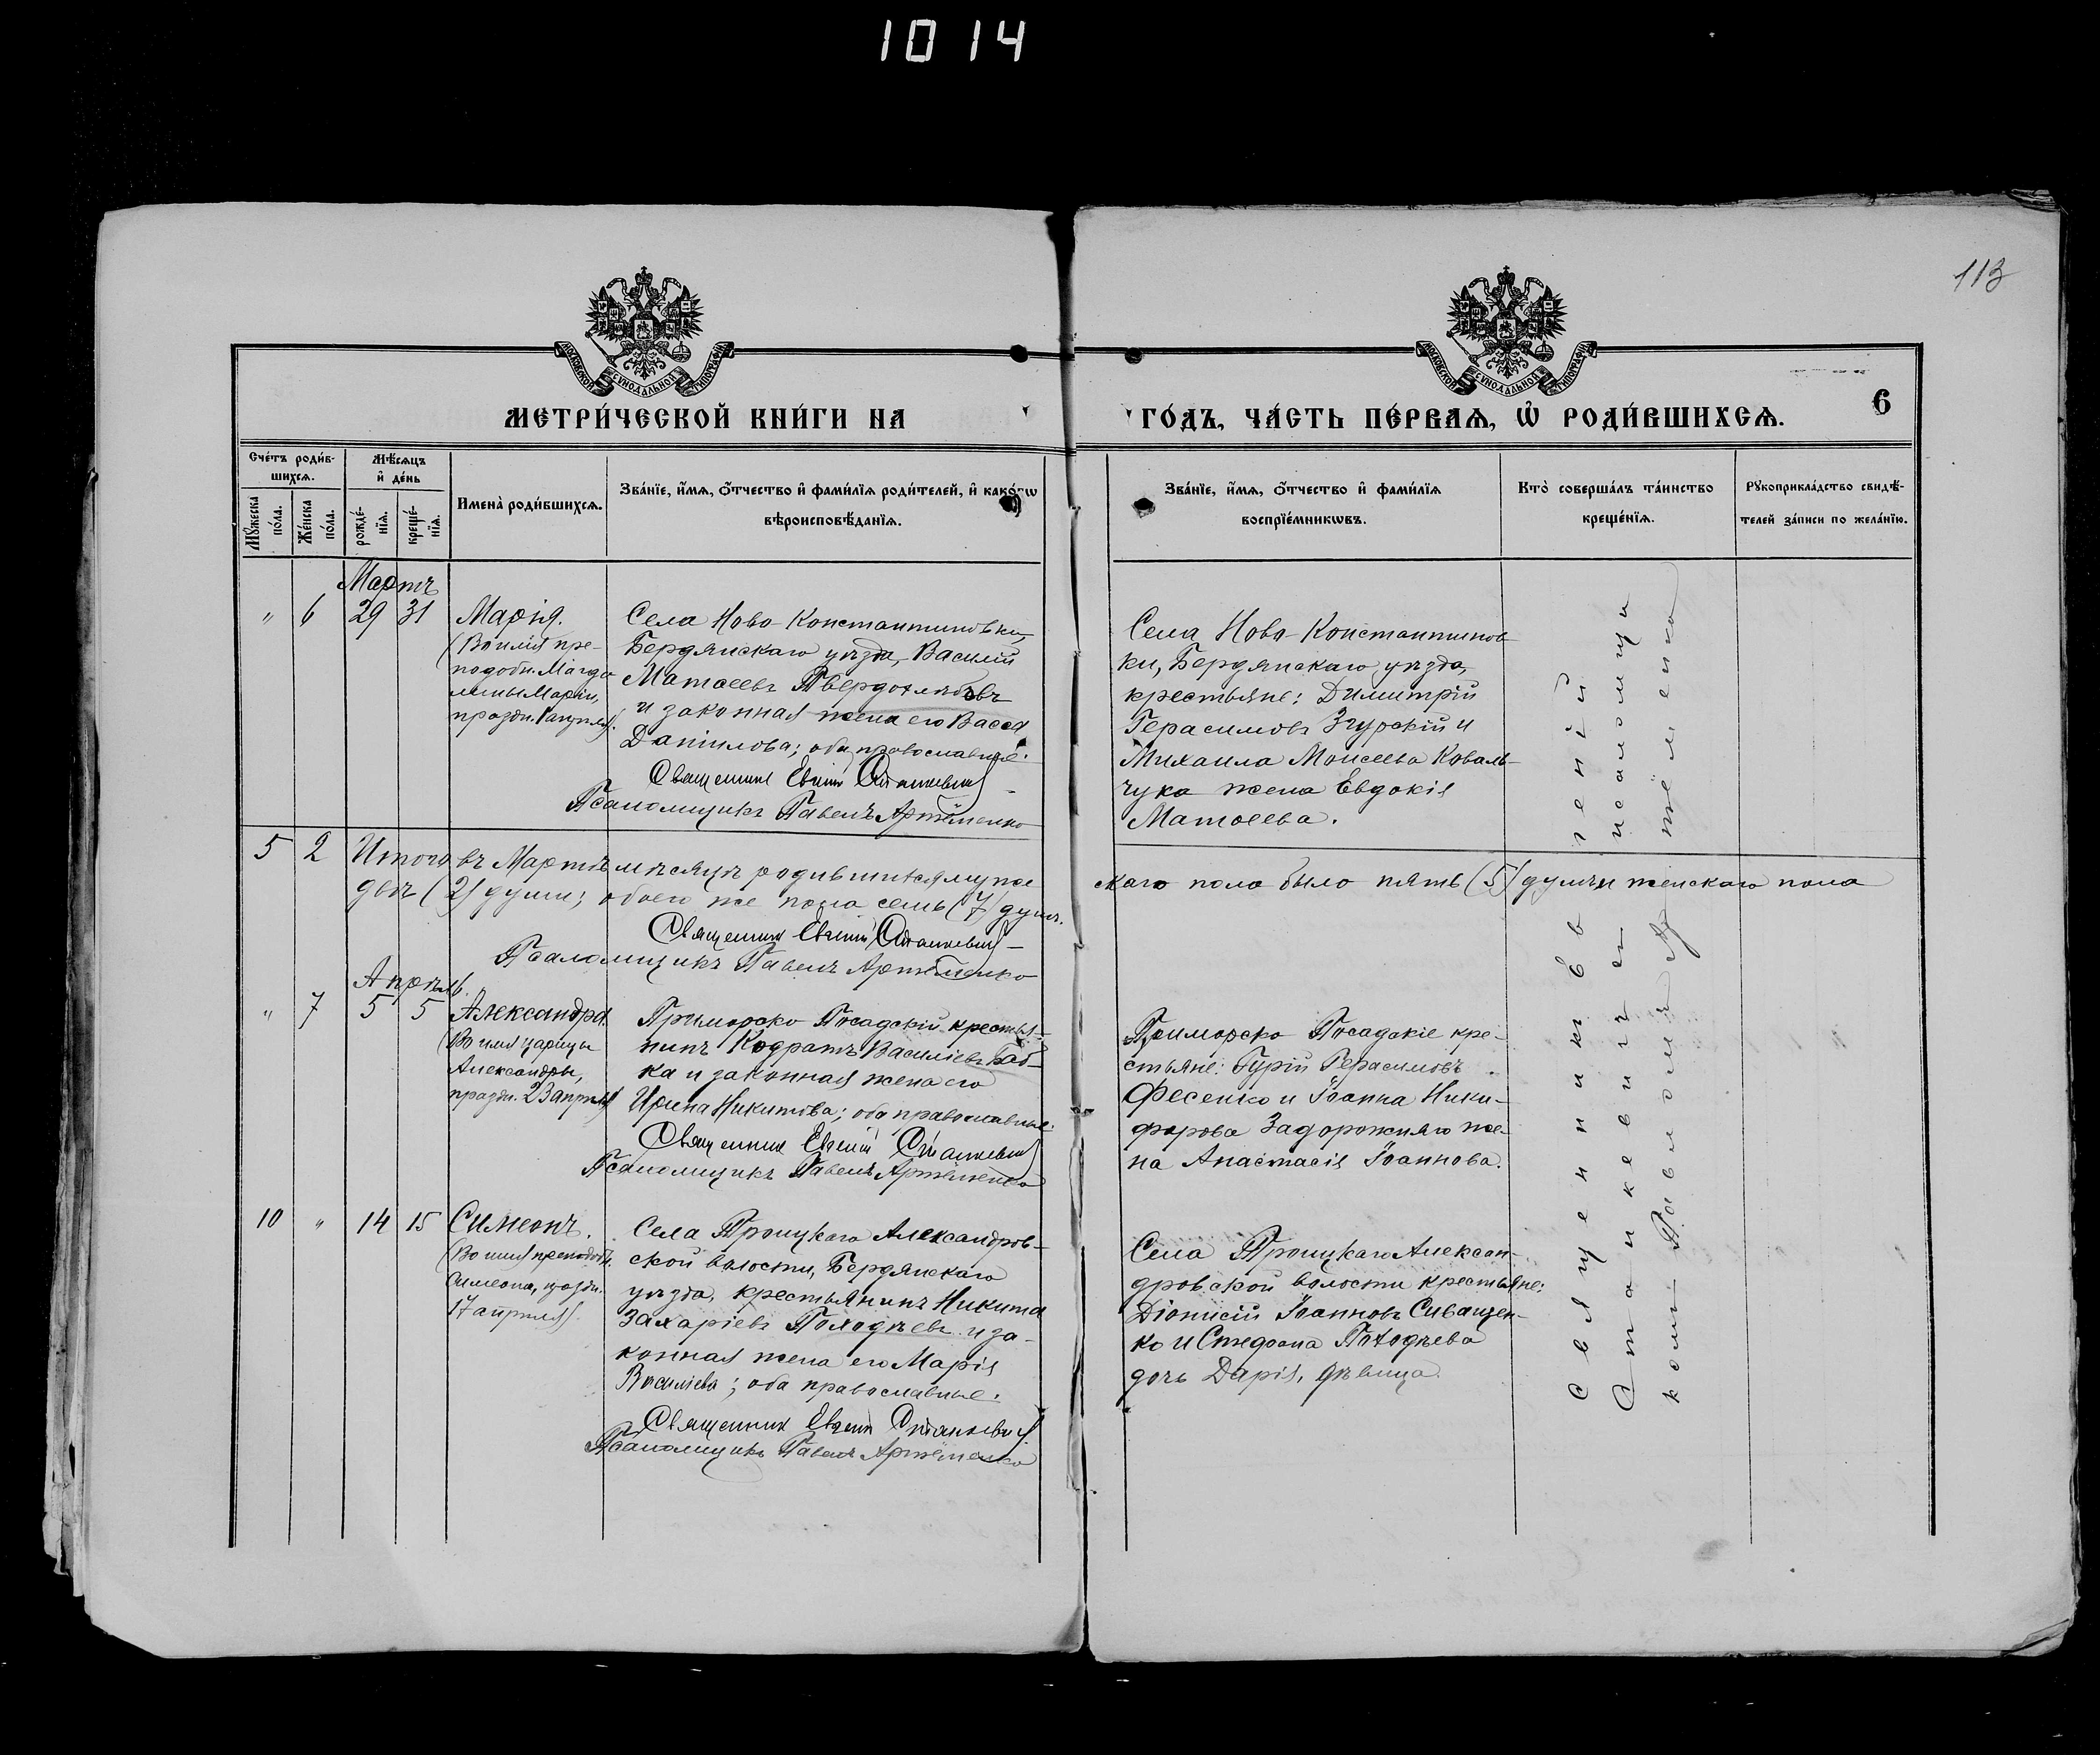 1014
113
МОСКОВСКОЙ СѴНОДАЛЬНОЙ ТИПОГРАФІИ
МОСКОВСКОЙ СѴНОДАЛЬНОЙ ТИПОГРАФІИ
МЕТРИ́ЧЕСКОЙ КНИ́ГИ НА
ГО́ДЪ, ЧА́СТЬ ПЕ́РВАѦ, Ѡ҆ РОДИ́ВШИХСѦ.
6
Сче́тъ роди́в-
шихсѧ.
Мꙋ́жеска по́ла.
Же́нска по́ла.
Мѣ́сѧцъ
и҆ де́нь
рожде́-
нїѧ.
креще́-
нїѧ.
Имена̀ роди́вшихсѧ.
Зва́нїе, и҆́мѧ, ѻ҆́тчество и҆ фами́лїѧ роди́телей, и҆ како́гѡ
вѣроисповѣ́данїѧ.
Зва́нїе, и҆́мѧ, ѻ҆́тчество и҆ фами́лїѧ
воспрїе́мникѡвъ.
Кто̀ соверша́лъ та́инство
креще́нїѧ.
Рꙋкоприкла́дство свидѣ́-
телей за́писи по жела́нїю.
Мартъ
" 6 29 31 Марія.
(Во имя пре-
подобн. Магда-
лины Маріи,
праздн. 1 апрѣля).
Села Ново-Константиновки,
Бердянскаго уѣзда, Василій
Матѳеевъ Твердохлѣбовъ
и законная жена его Васса
Даніилова; оба православные.
Священник Евгеній Станкевич
Псаломщикъ Павелъ Артёменко
Села Ново-Константинов-
ки, Бердянскаго уѣзда,
крестьяне: Димитрій
Герасимовъ Згурскій и
Михаила Моисеева Коваль-
чука жена Евдокія
Матѳеева.
5 2 Итого въ Мартѣ мѣсяцѣ родившихся муже
скаго пола было пять (5) душъ и женскаго пола
двѣ (2) души; обоего же пола семь (7) душъ.
Священник Евгеній Станкевич
Псаломщикъ Павелъ Артёменко
Апрѣль.
" 7 5 5 Александра.
(Во имя царицы
Александры,
праздн. 23 апрѣля)
Приморско Посадскій крестья-
нинъ Кодратъ Василіевъ Баб-
ка и законная жена его
Ирина Никитова; оба православные.
Священник Евгеній Станкевич
Псаломщикъ Павелъ Артёменко
Приморско Посадскіе кре-
стьяне: Гурій Герасимовъ
Фесенко и Іоанна Ники-
форова Задорожняго же-
на Анастасія Іоаннова.
10 " 14 15 Симеонъ.
(Во имя преподобн.
Симеона, праздн.
17 апрѣля).
Села Троицкаго Александров-
ской волости, Бердянскаго
уѣзда, крестьянинъ Никита
Захаріевъ Походѣевъ и за-
конная жена его Марія
Василіева; оба православные.
Священник Евгеній Станкевич
Псаломщикъ Павелъ Артёменко
Села Троицкаго Алексан-
дровской волости крестьяне:
Діонисій Іоанновъ Сиващен-
ко и Стефана Походѣева
дочь Дарія, дѣвица.
Священникъ Евгеній
Станкевичъ съ псаломщи
комъ Павломъ Артёменко